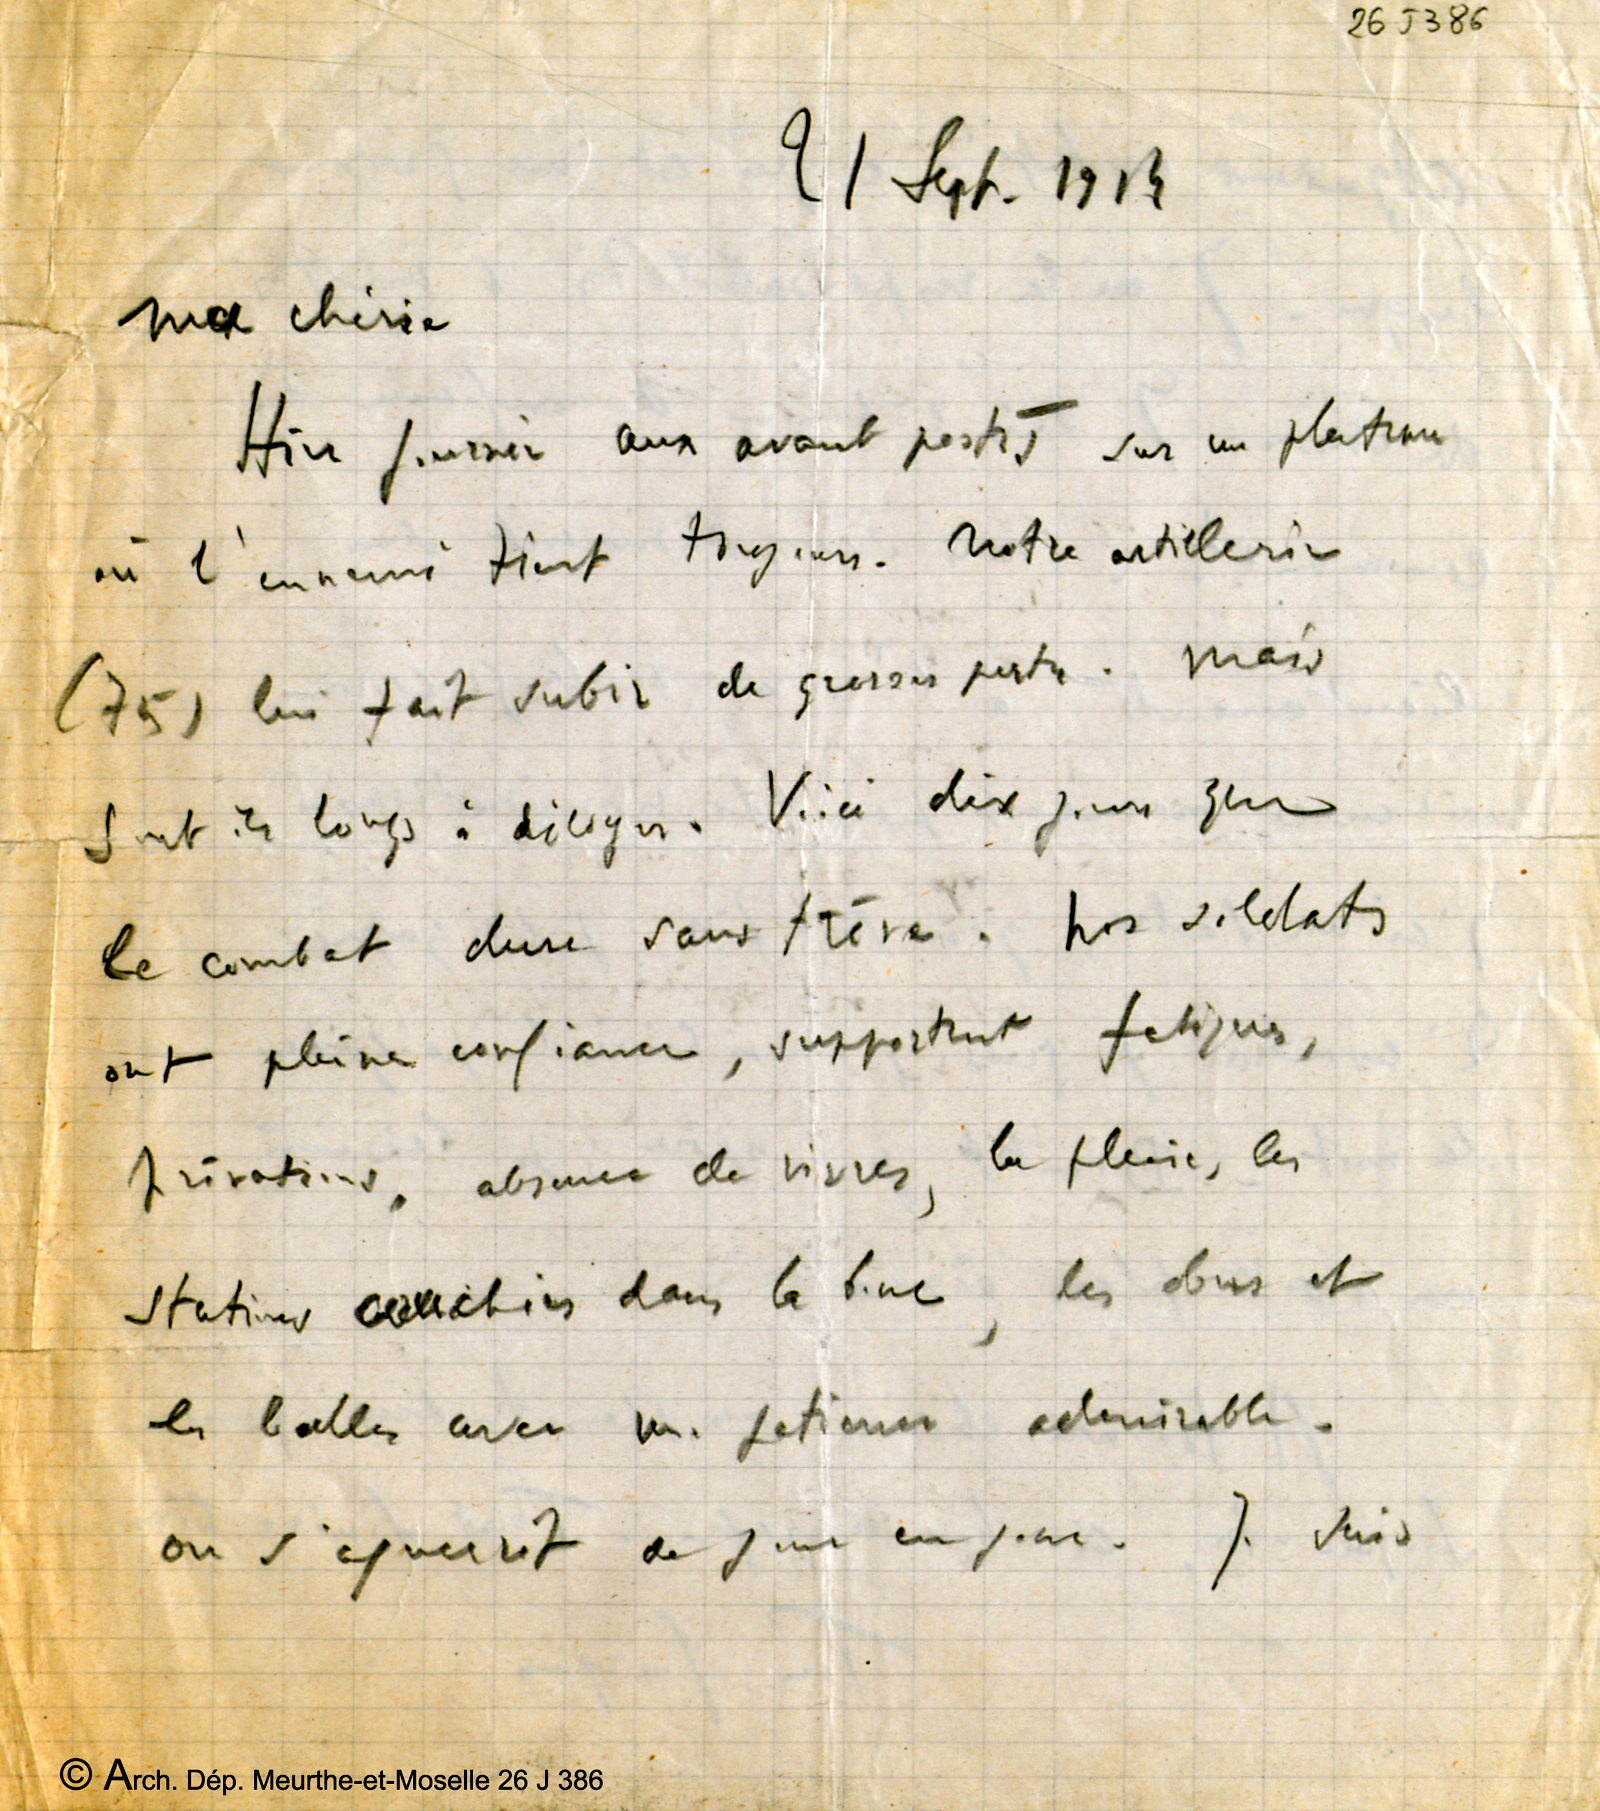 26 J 386
21 Sept. 1914
ma chérie
Hier journée aux avant postes sur un plateau
où l'ennemi tient toujours. Notre artillerie
(75) lui fait subir de grosses pertes. Mais
sont ils longs à déloger. Voici dix jours que
le combat dure sans trêve. Nos soldats
ont pleine confiance, supportent fatigues,
privations, absence de vivres, la pluie, les
stations couchées dans la boue, les obus et
les balles avec une patience admirable.
on s'aguerrit de jour en jour. Je suis
© Arch. Dép. Meurthe-et-Moselle 26 J 386